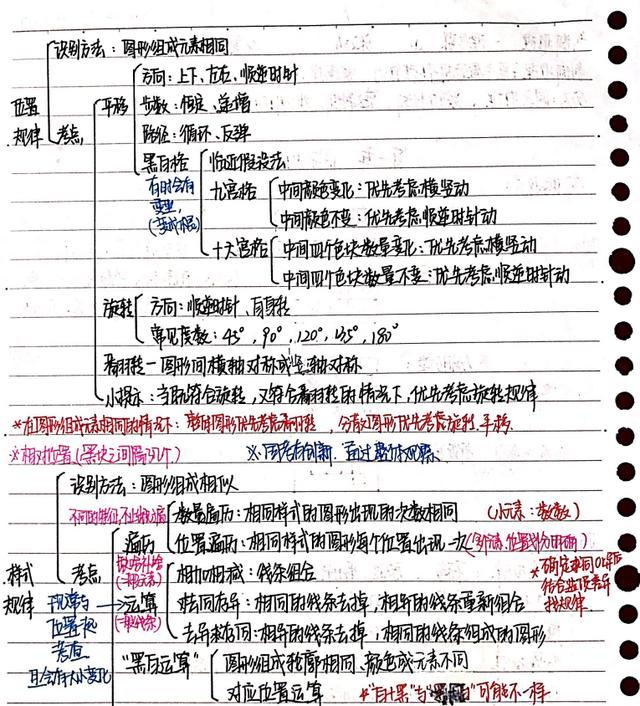 识别方法：图形组成元素相同
位置规律
考点
平移
方向：上下、左右、顺逆时针
步数：恒定、递增
路径：循环、反弹
黑白格
有时会有
变业
临近假设法
九宫格
中间颜色变化：优先考虑横竖动
中间颜色不变：优先考虑顺逆时针动
十六宫格
中间四个色块数量变化：优先考虑横竖动
中间四个色块数量不变：优先考虑顺逆时针动
旋转
方向：顺逆时针、自身转
常见度数：45°，90°，120°，135°，180°
翻转—图形间横轴对称或竖轴对称
小提示：当既符合旋转，又符合翻转的情况下，优先考虑旋转规律
*在图形组成元素相同的情况下：整体图形优先考虑翻转，分离图形优先考虑旋转、平移
*相对位置（黑块之间隔几个）
*国考有创新，通过整体观察
识别方法：图形组成相似
样式规律
考点
遍历
数量遍历：相同样式的图形出现的次数相同
（小元素：数数）
位置遍历：相同样式的图形每个位置出现一次
运算
相加相减：线条组合
求同存异：相同的线条去掉，相异的线条重新组合
去异求同：相异的线条去掉，相同的线条组成的图形
（一般线条）
（一般元素）
可能常与
位置规
考查
且会有大小变化
找规律
"黑白运算"
图形组成轮廓相同、颜色或元素不同
对应位置运算
*"白+黑"与"黑+白"可能不一样